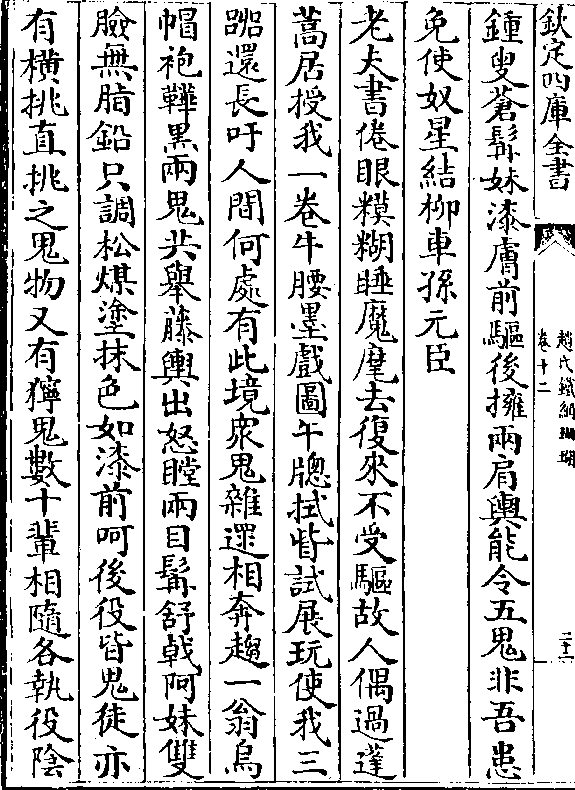 欽定四庫全書
趙氏鐵網珊瑚
卷十二
二十二
鍾叟蒼髯妹漆膚前驅後擁兩肩輿能令五鬼非吾患
免使奴星結柳車孫元臣
老夫書倦眼糢糊睡魔麾去復來不受驅故人偶過蓬
蒿居授我一卷牛腰墨戲圖午牕拭眥試展玩使我三
䠖還長吁人間何處有此境衆鬼雜遝相奔趨一翁烏
帽袍鞾黑兩鬼共舉藤輿出怒瞠兩目髯舒戟阿妹雙
臉無脂鉛只調松煤塗抹色如漆前呵後役皆鬼徒亦
有橫挑直挑之鬼物又有獰鬼數十輩相隨各執役陰